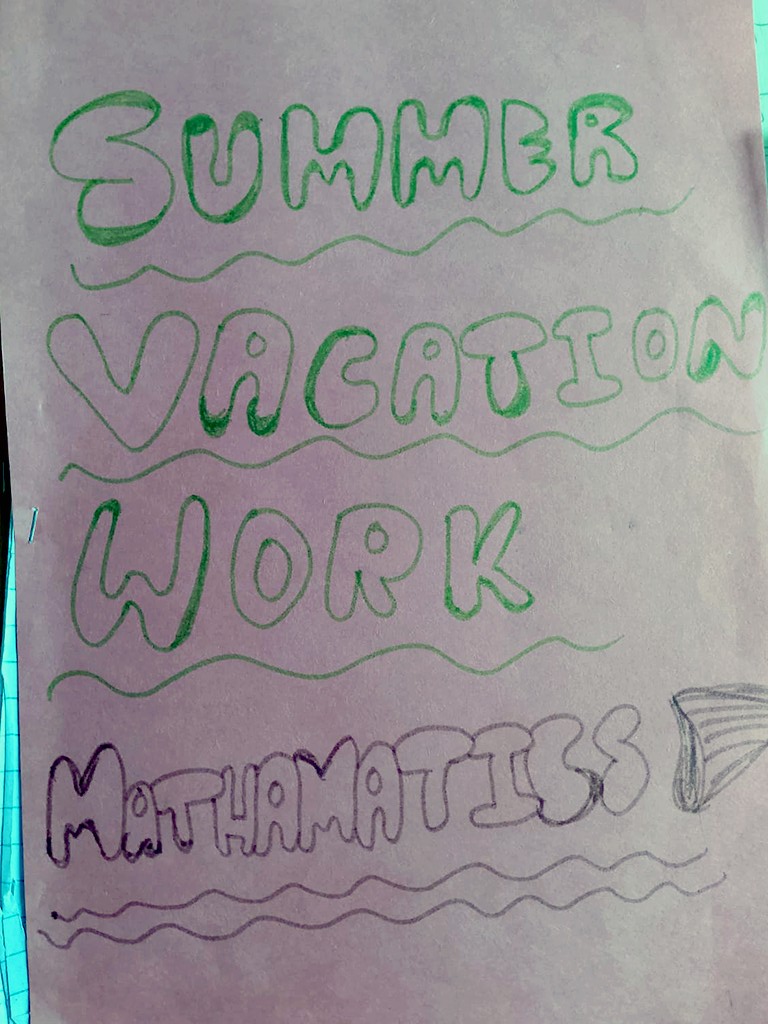 SUMMER
VACATION
WORK
MATHAMATICS